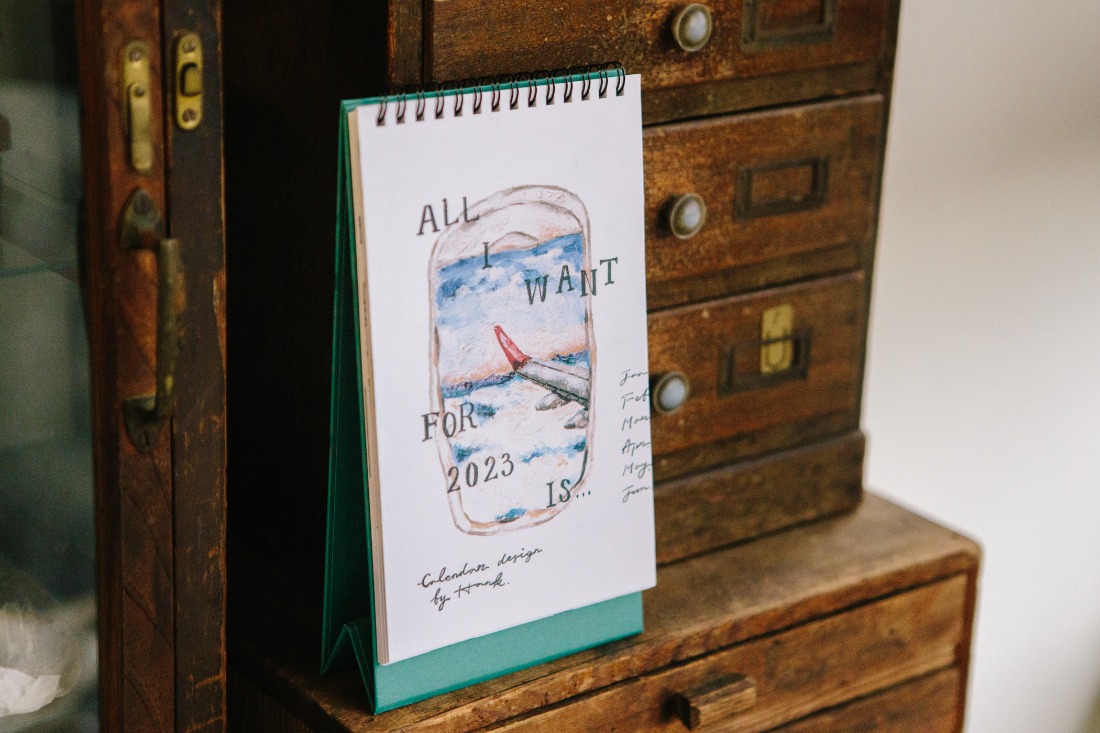 ALL
I
WANT
FOR
2023
IS...
Calendar design
by Hank.
Jan
Feb
Mar
Apr
May
Jun